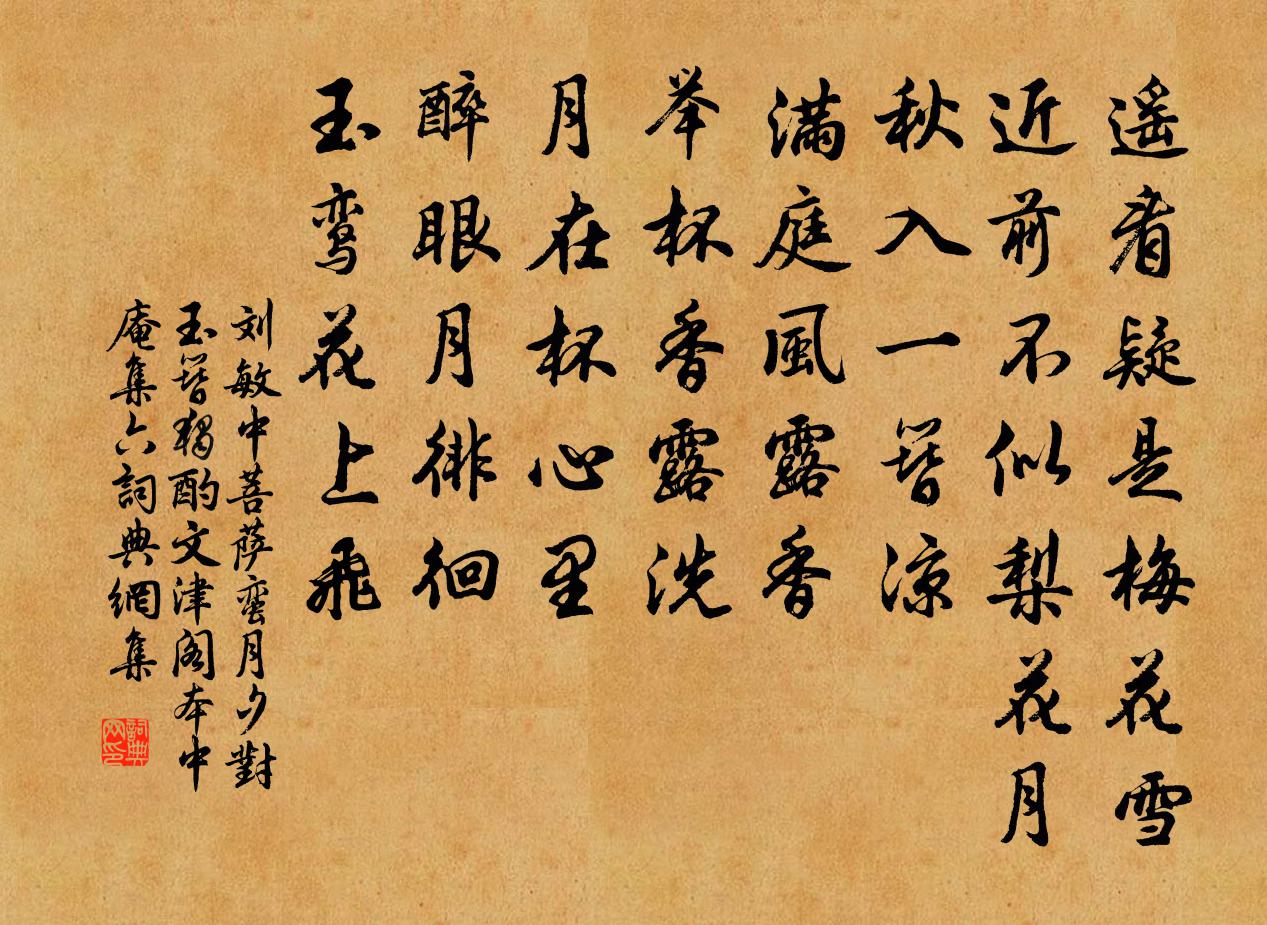 遥看疑是梅花雪
近前不似梨花月
秋入一簪凉
满庭風露香
举杯香露洗
月在杯心里
醉眼月徘徊
玉鸾花上飛
刘敏中菩萨蛮月夕對
玉簪獨酌文津阁本中
庵集六詞典網集
詞典网印